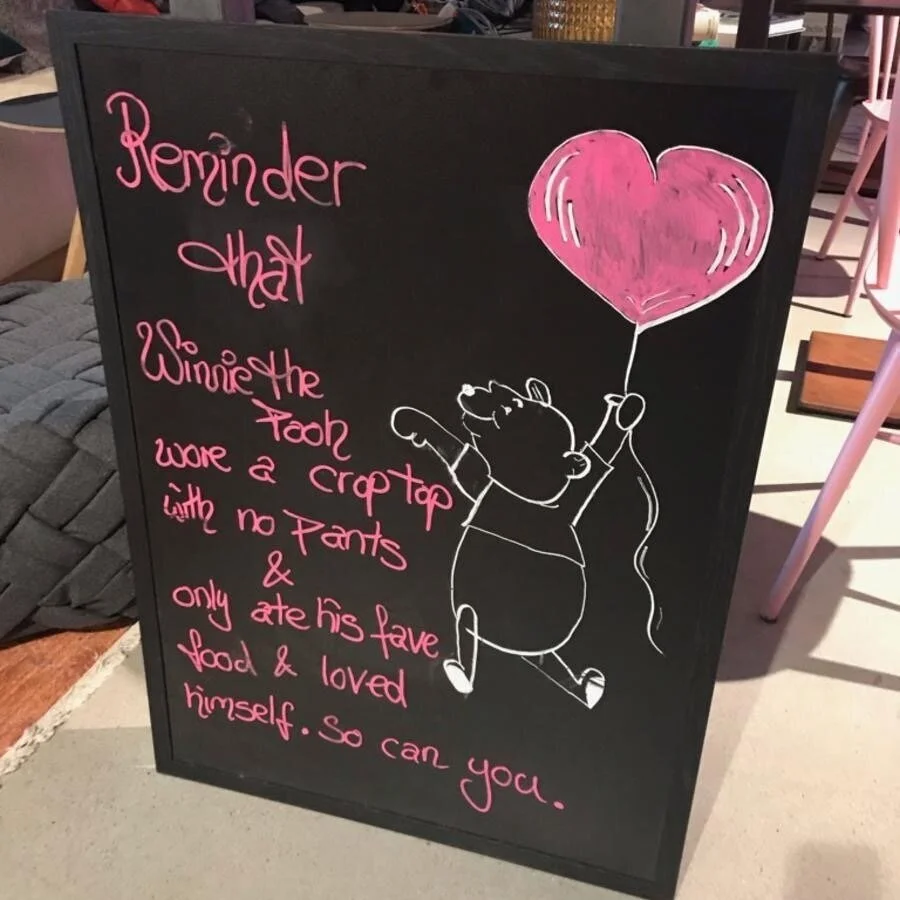 Reminder
that
Winnie the
Pooh
wore a crop top
with no Pants
&
only ate his fave
food & loved
himself. So can you.